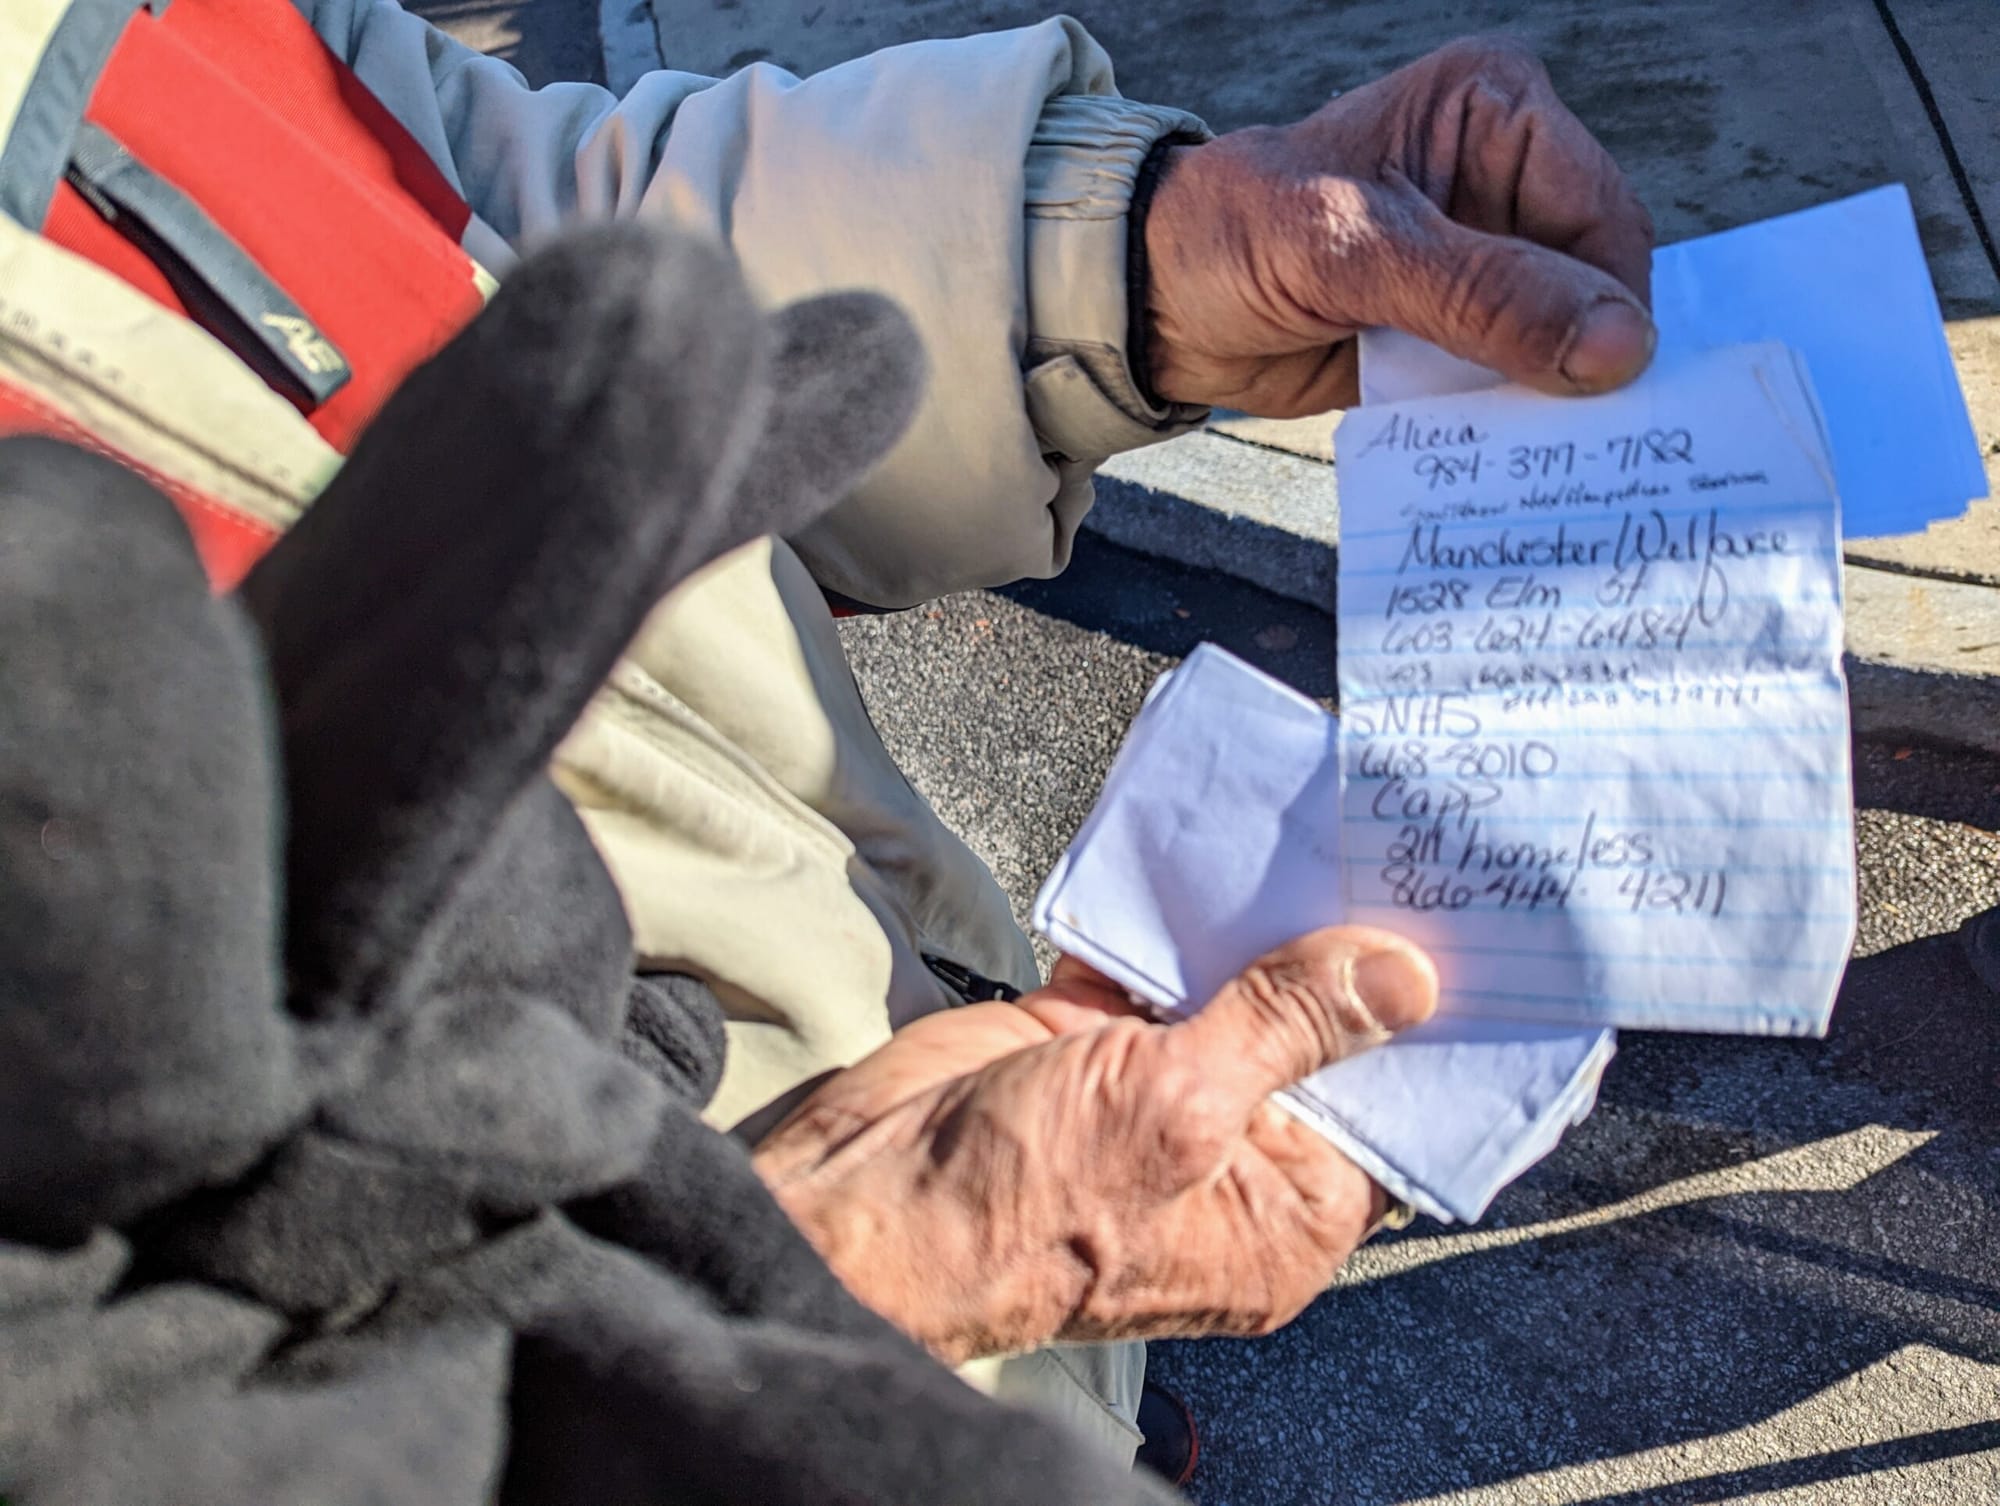 Alicia
984-377-7182
Southern New Hampshire Services
Manchester/Welfare
1528 Elm St
603-624-6484
603
SNHS
668-8010
Capp
211 homeless
866-444-4211